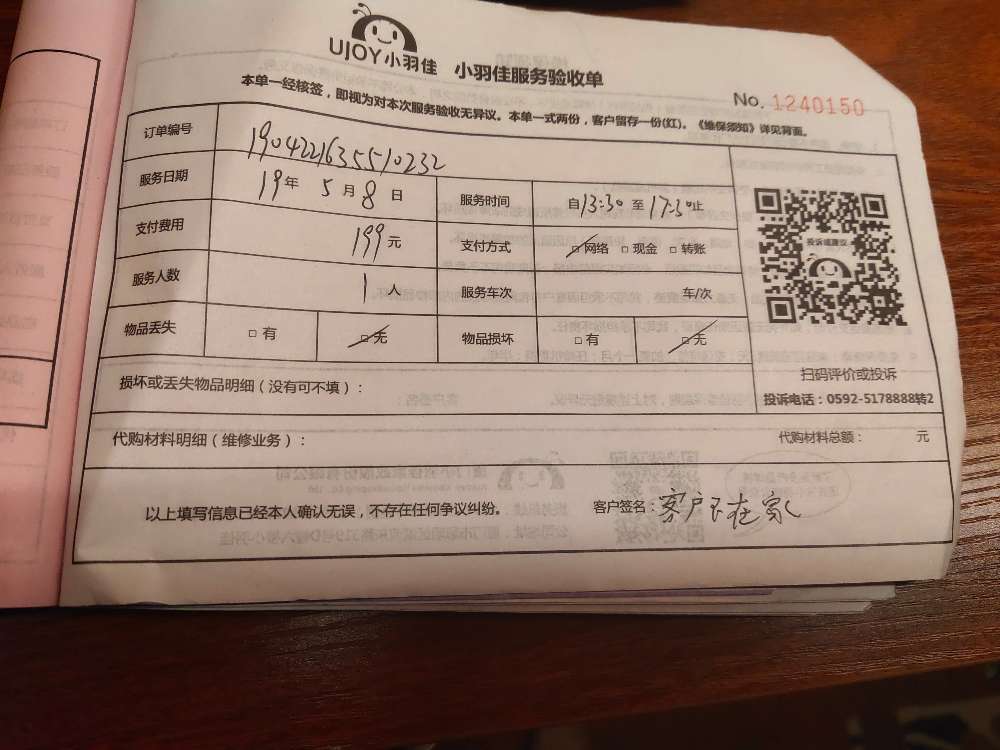 UJOY小羽佳 小羽佳服务验收单
本单一经核签，即视为对本次服务验收无异议。本单一式两份，客户留存一份(红)。《维保须知》详见背面。
No. 1240150
订单编号 1904221635510232
服务日期 19年 5月 8日 服务时间 自13:30至17:30止
支付费用 199元 支付方式 ☑网络 □现金 □转账
服务人数 1人 服务车次 车/次
物品丢失 □有 ☑无 物品损坏 □有 ☑无
投诉或建议
扫码评价或投诉
投诉电话：0592-5178888转2
损坏或丢失物品明细（没有可不填）：
代购材料明细（维修业务）： 代购材料总额： 元
以上填写信息已经本人确认无误，不存在任何争议纠纷。 客户签名：客户不在家